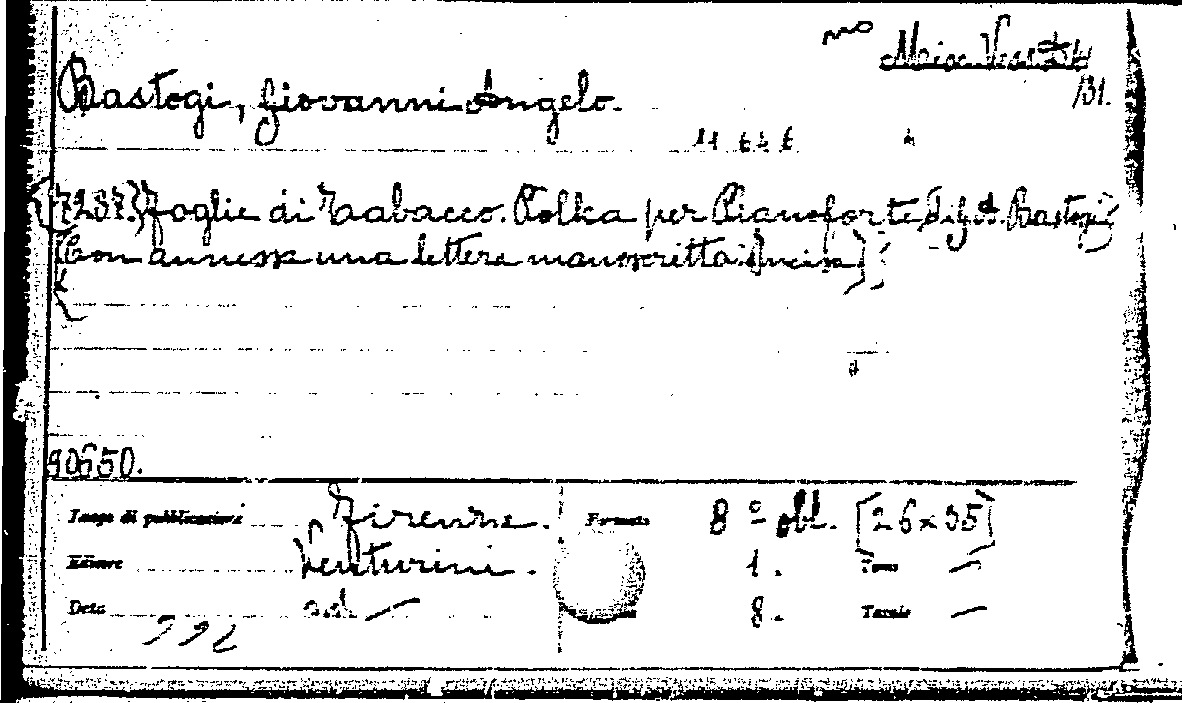 Bastogi, Giovanni Angelo.
131.
{7237.} Foglie di Tabacco. Polka per Pianoforte di G. A. Bastogi
(Con annessa una lettera manoscritta) [Incisa]
90650.
Luogo di pubblicazione Firenze. Formato 8º obl. [26×35]
Editore Venturini. 1. Tomo —
Data 8. Tavole —